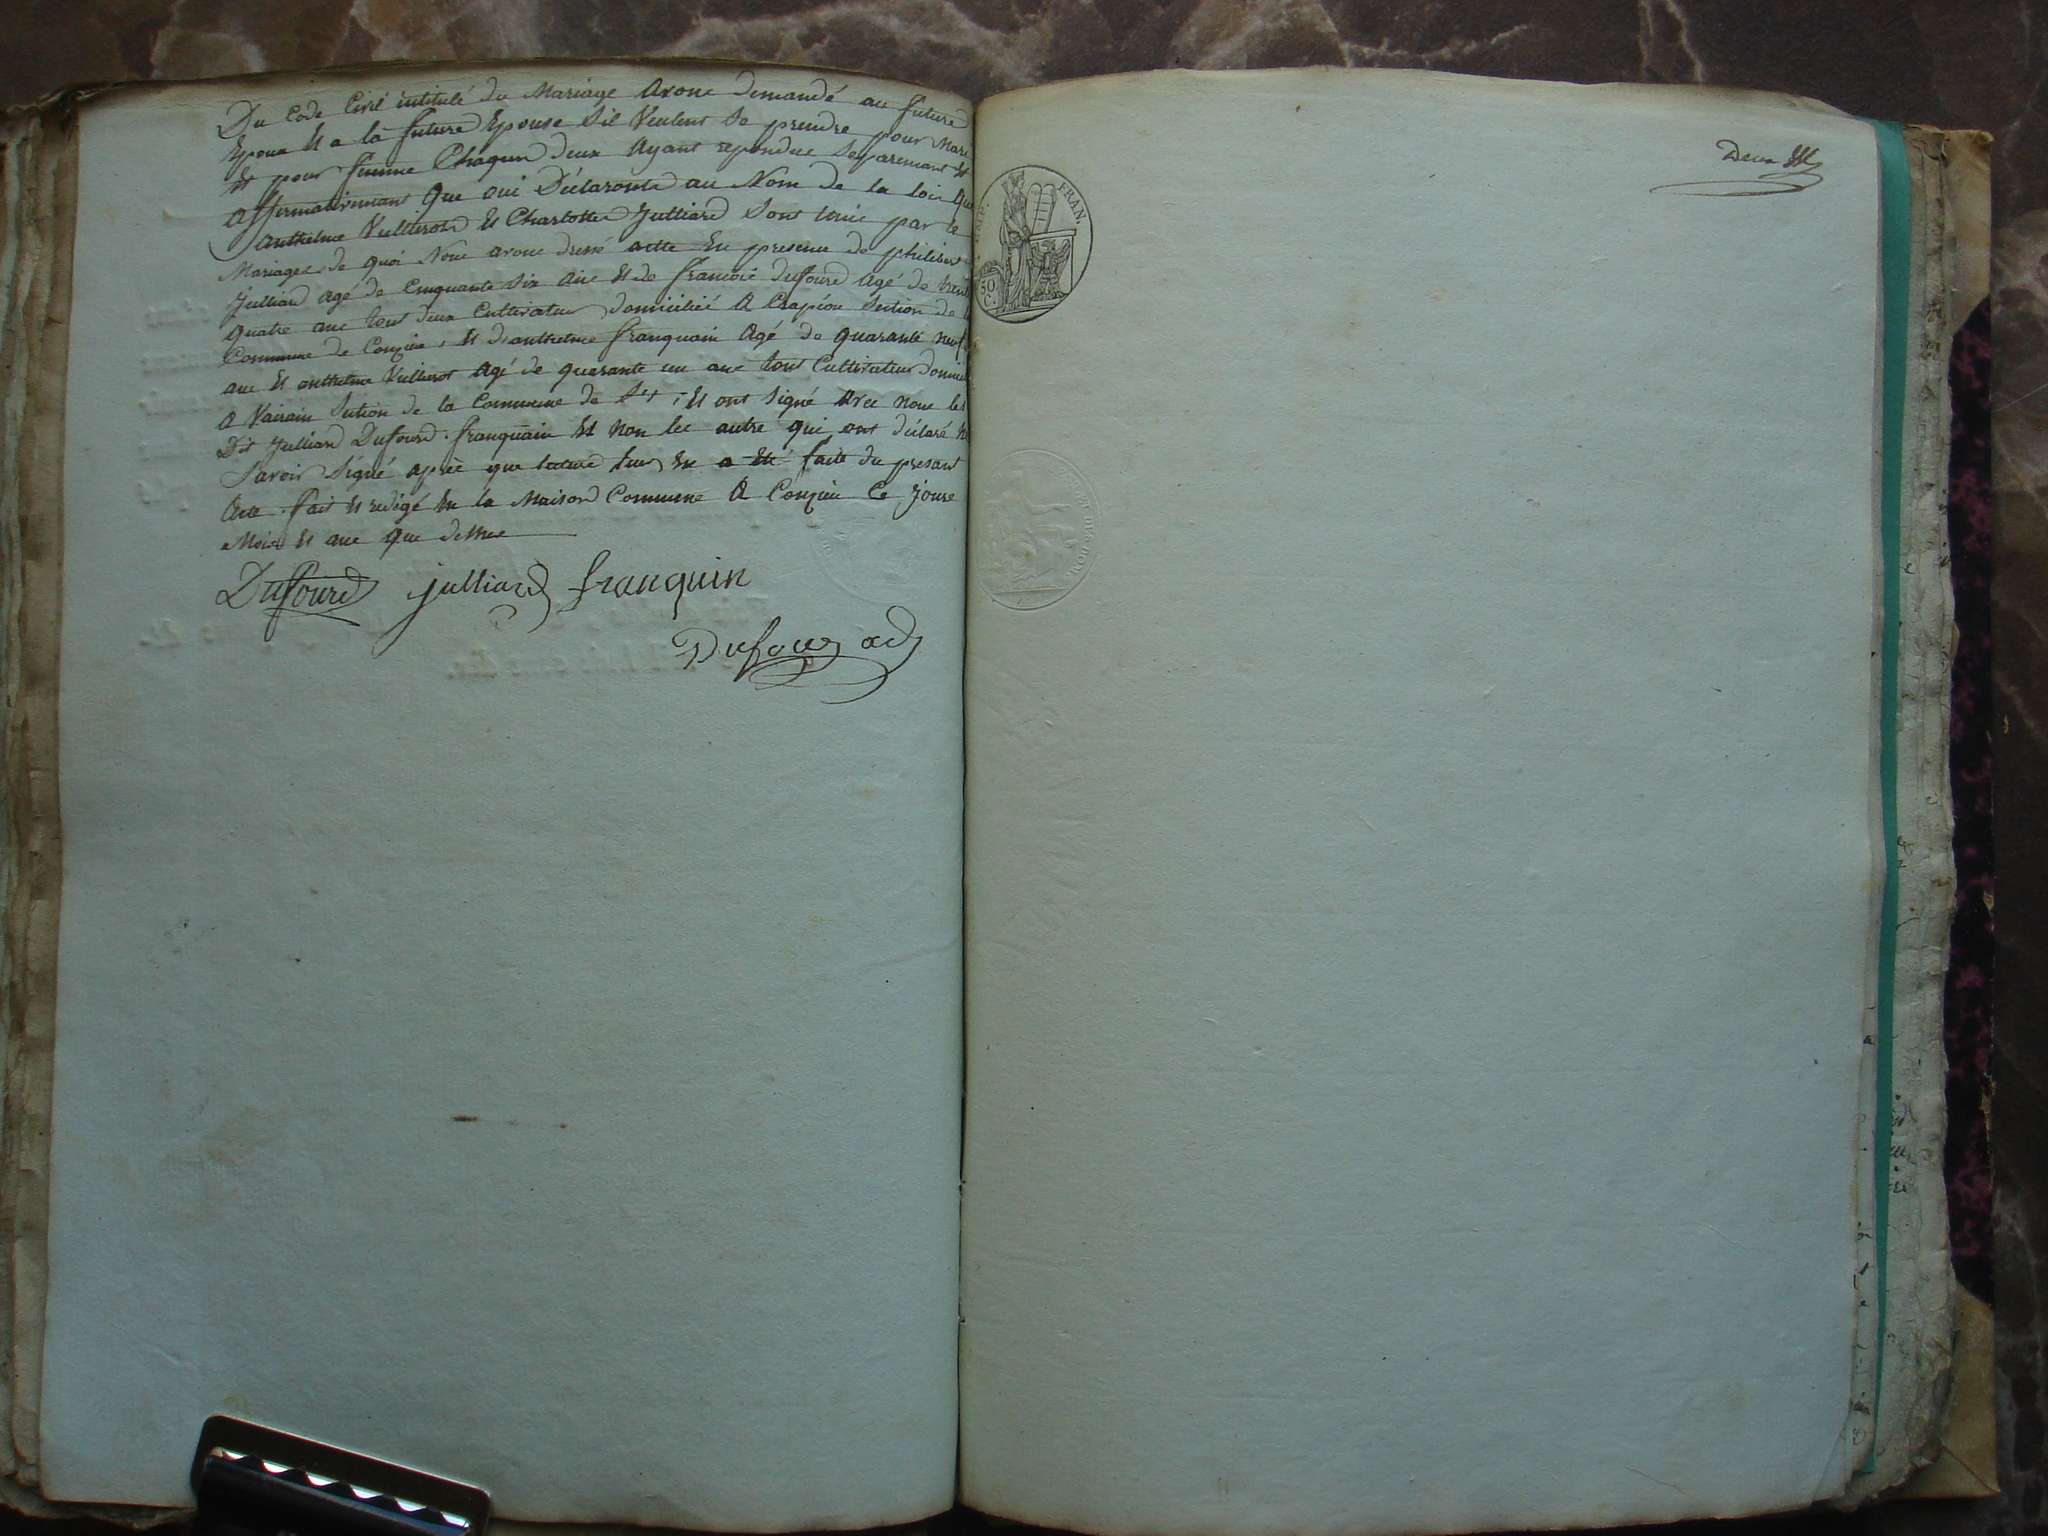 Du Code Civil intitulé du Mariage Avons demandé au future
Epoux Et a la future Epouse Sil Veulent Se prendre pour Mare
Et pour femme Chaqun deux Ayant repondue Separemant Et
affirmativemant Que oui Déclarons au Nom de la loi Que
anthelme Vullierod Et Charlotte Julliard Sont Unis par le
Mariage, de quoi Nous avons dressé acte En presence de philibert
Julliard agé de Cinquante Six Ans Et de francois duffourd Agé de trente
Quatre ans tous deux Cultivateur domicilié A Crapéou Section de
Commune de Conzieu, Et d'anthelme franquain Agé de quarante neuf
ans Et anthelme Vullierot Agé de quarante un ans tous Cultivateur domici
A Vairain Section de la Commune de St ; Et ont Signé Avec nous les
Dit Julliard Duffourd franquain Et Non les autre qui ont déclaré ne
Savoir Signé après que lecture leur En a Eté faite du presant
Acte. fait Et redigé En la Maison Commune A Conzieu Ce Joure
Mois Et ans Que dessus
Duffourd julliard franquin
Dufour adj
Deux
IMP. FRAN.
50
C.